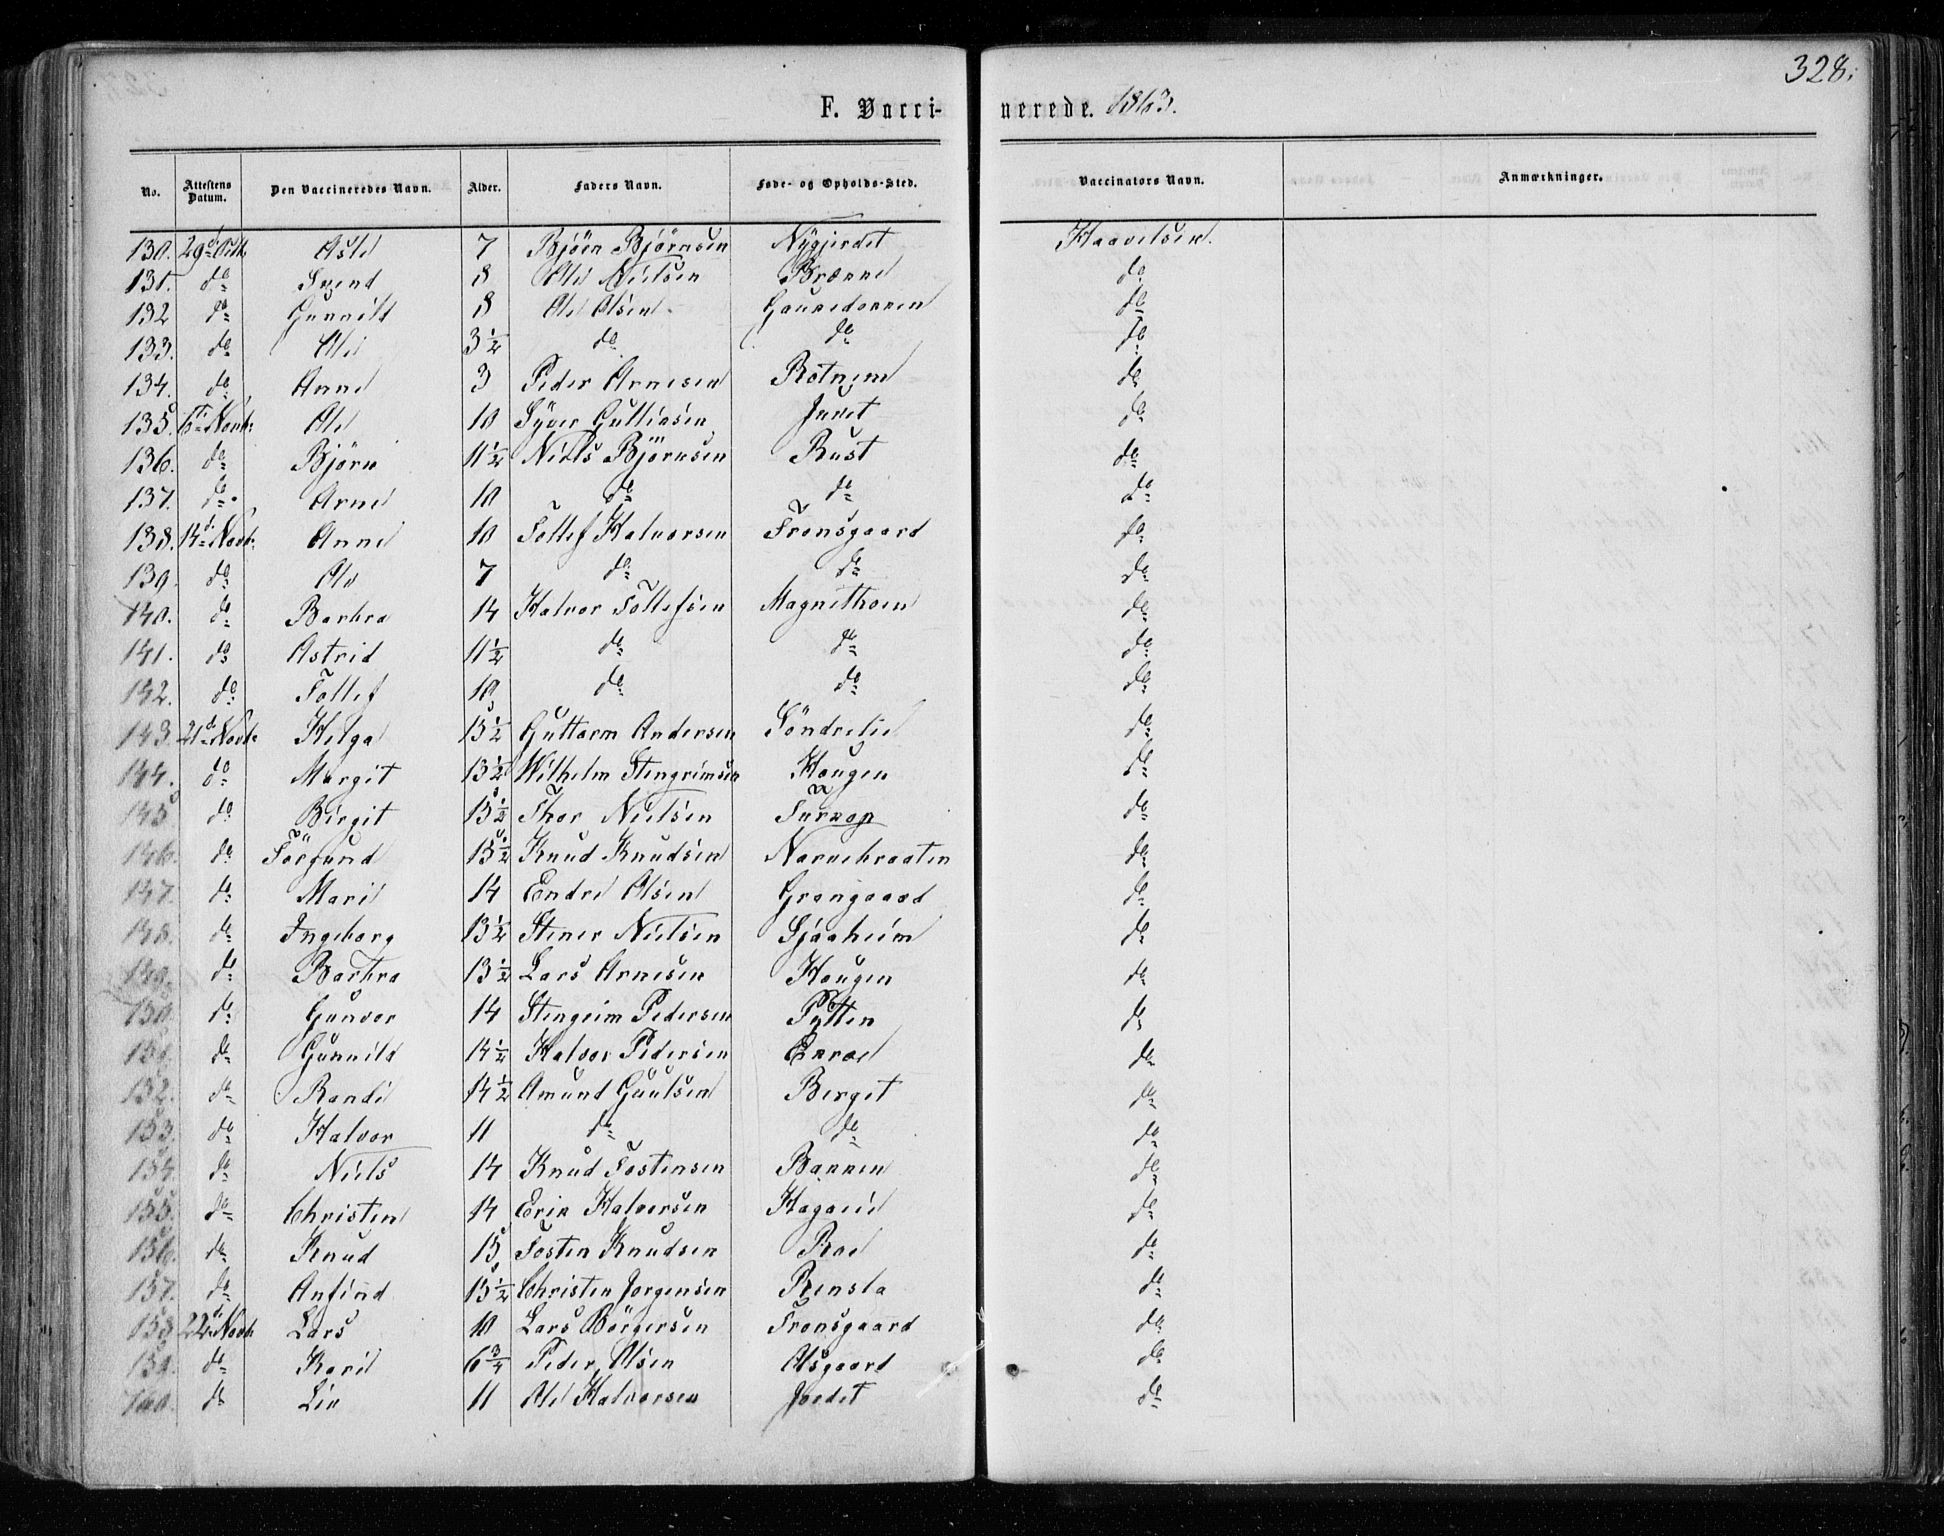 328.
F. Vaccinerede. 1863.
No. Attestens Datum. Den Vaccineredes Navn. Alder. Faders Navn. Føde- og Opholds-Sted. Vaccinators Navn. Anmærkninger.
130. 29d Octb. Asle 7 Bjørn Bjørnsen Nygjerdet Haavelsen.
131. do Svend 8 Ole Nielsen Brænne do
132 do Gunnild 8 Ole Olsen do
133. do Ole 3½ do do do
134. do Anne 3 Peder Arnesen Rotneim do
135. 6te Novb: Ole 10 Syver Guttiosen Juvet do
136. do Bjørn 11½ Niels Bjørnsen Rust do
137. do Arne 10 do do do
138. 14d Novb: Anne 10 Tollef Halvorsen Fronsgaard do
139. do Ole 7 do do do
140. do Barbra 14 Halvor Tollefsen Magnethoen do
141. do Astrid 11½ do do do
142. do Tollef 10 do do do
143. 21d Novb: Helga 13½ Guttorm Andersen Söndrelie do
144. do Margit 13½ Wilhelm Stengrimsen Haugen do
145 do Birgit 15½ Thor Nielsen do
146. do Törgund 15½ Knud Knudsen Narvebraaten do
147. do Mari 14 Endre Olsen Grøngaard do
148. do Ingeborg 13½ Stener Nielsen Sjaaheim do
149. do Barbra 13½ Lars Arnesen Haugen do
150. do Gunvor 14 Stengrim Pedersen Pytten do
151. do Gunnild 14½ Halvor Pedersen do
152. do Randi 14½ Amund Guulsen Berget do
153. do Halvor 11 do do do
154. do Niels 14 Knud Tostensen Bakken do
155. do Christen 14 Erik Halvorsen do
156. do Knud 15 Tosten Knudsen Roe do
157. do Anfind 15½ Christen Jorgensen Rensla do
158. 22d Novb: Lars 10 Lars Börgersen Fronsgaard do
159. do Kari 6¾ Peder Olsen Olsgaard do
160. do Liv 11 Ole Halvorsen Jordet do